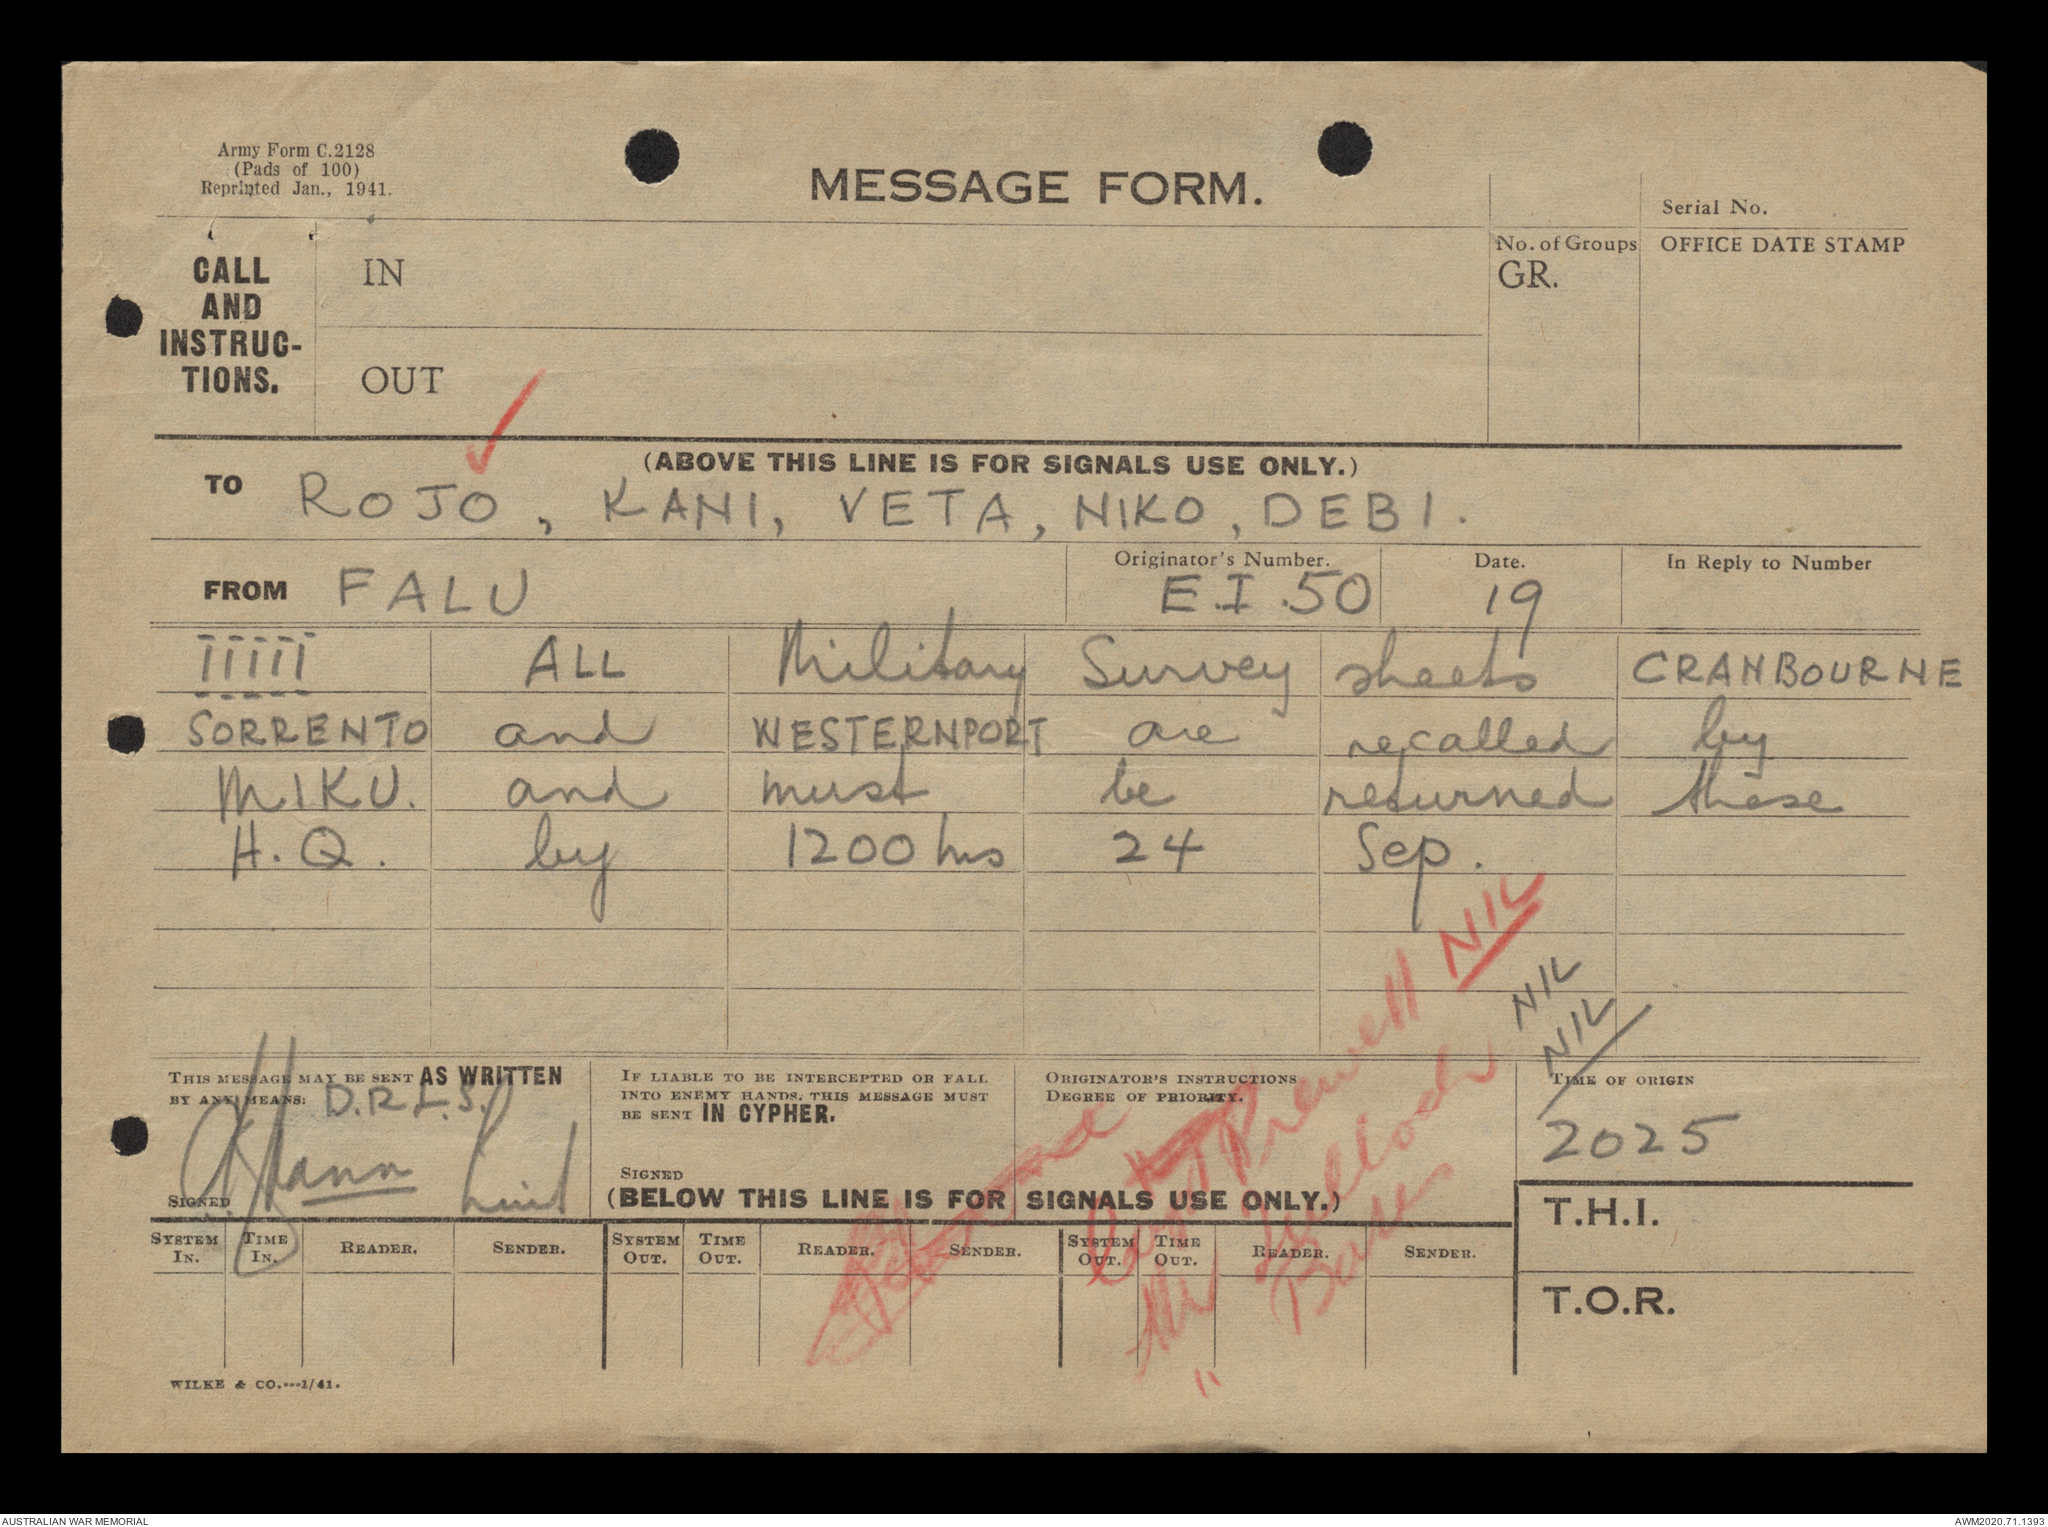 Army Form C.2128
(Pads of 100)
Reprinted Jan., 1941.
MESSAGE FORM.
Serial No.
CALL
AND
INSTRUC-
TIONS.
IN
OUT
No. of Groups
GR.
OFFICE DATE STAMP
(ABOVE THIS LINE IS FOR SIGNALS USE ONLY.)
TO ROJO, KANI, VETA, NIKO, DEBI.
FROM FALU
Originator's Number.
E.I.50
Date.
19
In Reply to Number
IIIII ALL Military Survey sheets CRANBOURNE
SORRENTO and WESTERNPORT are recalled by
MIKU. and must be returned these
H.Q. by 1200 hrs 24 Sep.
NIL
NIL
NIL
THIS MESSAGE MAY BE SENT AS WRITTEN
BY ANY MEANS: D.R.L.S.
SIGNED
IF LIABLE TO BE INTERCEPTED OR FALL
INTO ENEMY HANDS, THIS MESSAGE MUST
BE SENT IN CYPHER.
SIGNED
ORIGINATOR'S INSTRUCTIONS
DEGREE OF PRIORITY.
TIME OF ORIGIN
2025
(BELOW THIS LINE IS FOR SIGNALS USE ONLY.)
T.H.I.
T.O.R.
SYSTEM IN. TIME IN. READER. SENDER. SYSTEM OUT. TIME OUT. READER. SENDER. SYSTEM OUT. TIME OUT. READER. SENDER.
WILKE & CO.---1/41.
AUSTRALIAN WAR MEMORIAL
AWM2020.71.1393